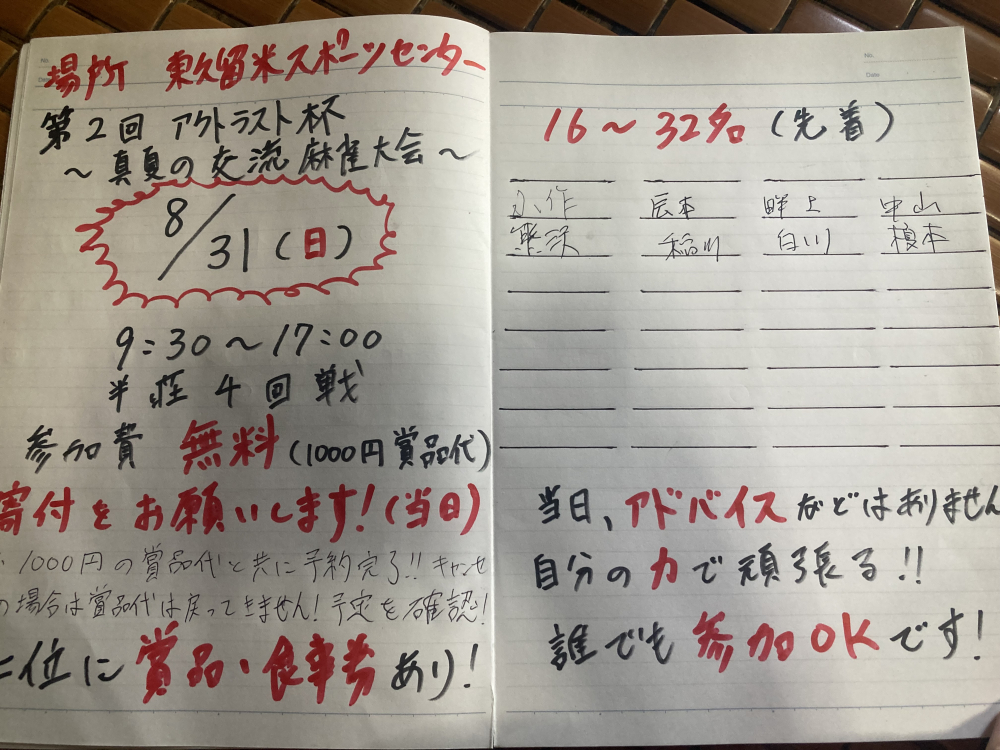 場所 東久留米スポーツセンター
第2回 アクトラスト杯
～真夏の交流麻雀大会～
8/31(日)
9:30～17:00
半荘4回戦
参加費 無料(1000円賞品代)
寄付をお願いします!(当日)
1000円の賞品代と共に予約完了!!キャンセ
の場合は賞品代は戻ってきません!予定を確認!
位に賞品・食事券あり!
16～32名(先着)
小作 辰本 畔上 中山
熊沢 稲川 白川 榎本
当日、アドバイスなどはありません
自分の力で頑張る!!
誰でも参加OKです!